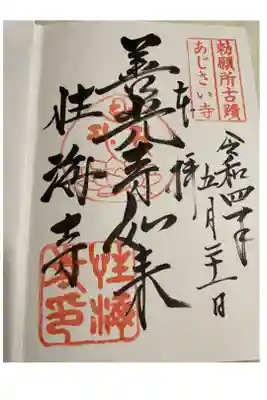 勅願所古蹟
あじさい寺
奉拝
令和四年
五月二十一日
善光寺如来
性海寺